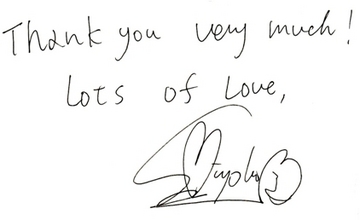 Thank you very much!
Lots of Love,